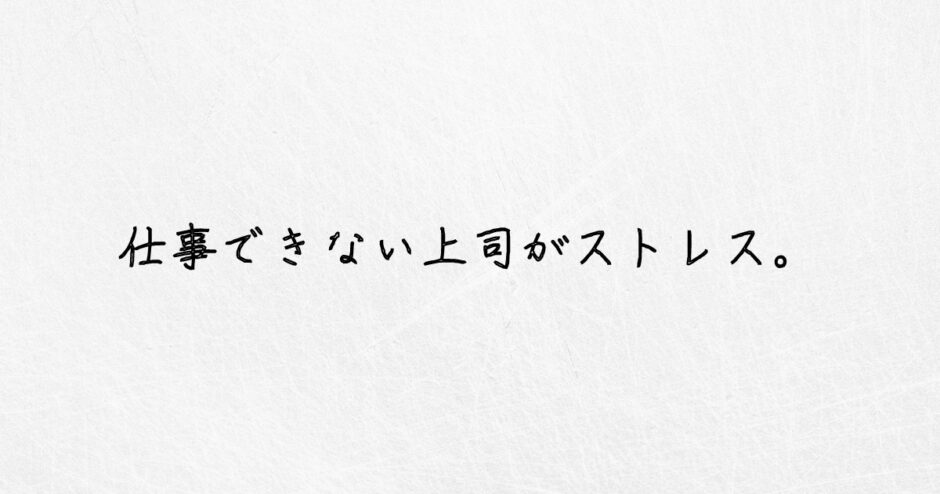 仕事できない上司がストレス。